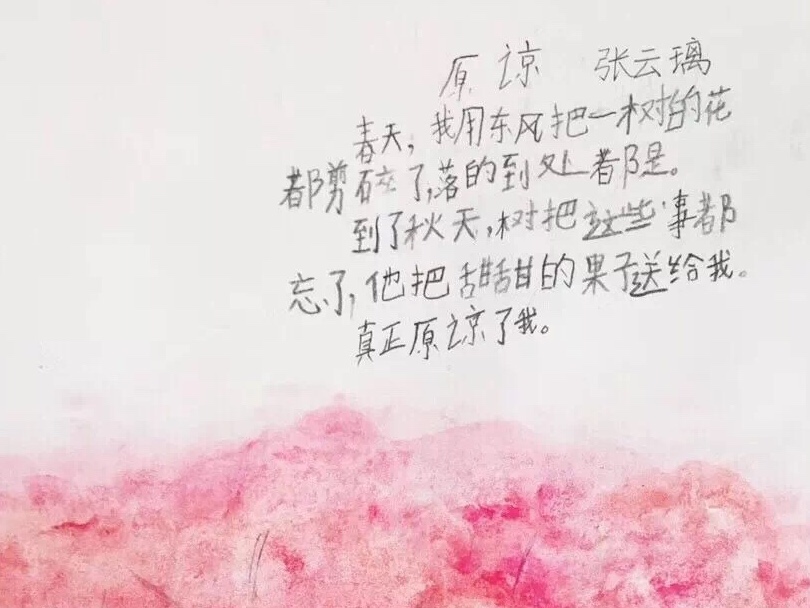 原谅 张云璃
春天，我用东风把一树的花
都剪碎了，落的到处都是。
到了秋天，树把这些事都
忘了，他把甜甜的果子送给我。
真正原谅了我。